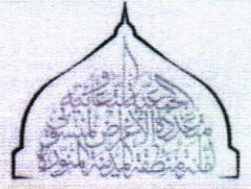 الجمعية التعاونية
متعددة الأغراض لمنسوبي
منطقة المدينة المنورة